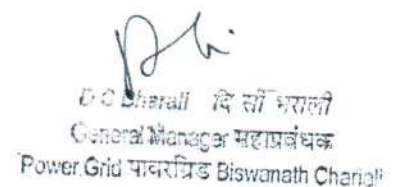 D C Bharali दि सी भराली
General Manager महाप्रबंधक
Power Grid पावरग्रिड Biswanath Chariali